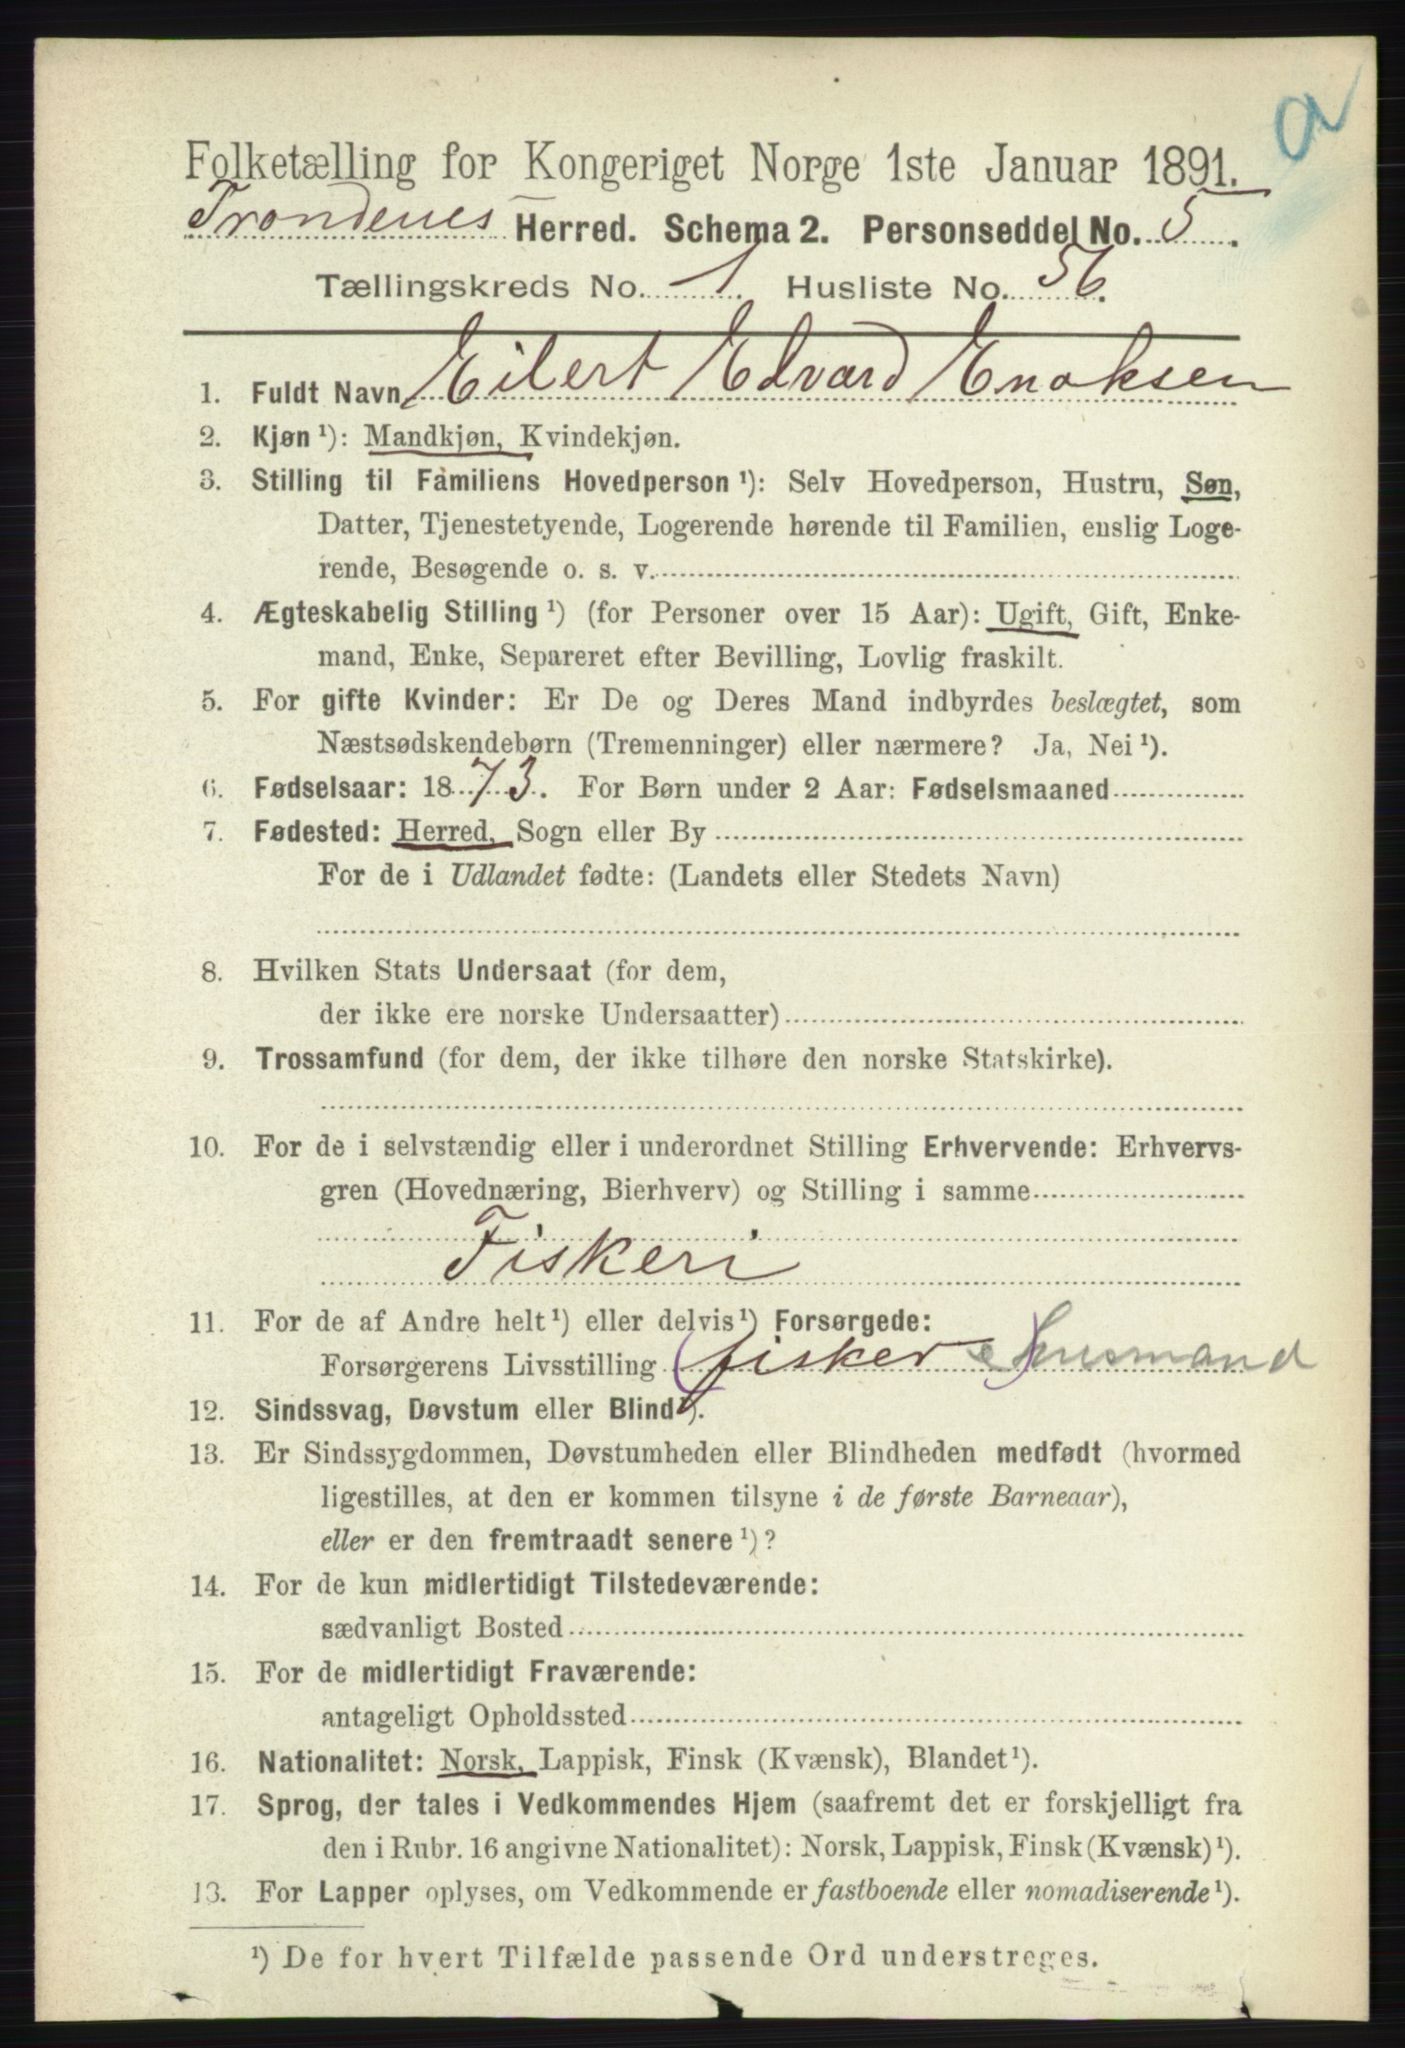 a
Folketælling for Kongeriget Norge 1ste Januar 1891.
Trondenes Herred. Schema 2. Personseddel No. 5.
Tællingskreds No. 1. Husliste No. 56.
1. Fuldt Navn Eilert Edvard Enoksen
2. Kjøn ¹): Mandkjøn, Kvindekjøn.
3. Stilling til Familiens Hovedperson ¹): Selv Hovedperson, Hustru, Søn,
Datter, Tjenestetyende, Logerende hørende til Familien, enslig Loge-
rende, Besøgende o. s. v.
4. Ægteskabelig Stilling ¹) (for Personer over 15 Aar): Ugift, Gift, Enke-
mand, Enke, Separeret efter Bevilling, Lovlig fraskilt.
5. For gifte Kvinder: Er De og Deres Mand indbyrdes beslægtet, som
Næstsødskendebørn (Tremenninger) eller nærmere? Ja, Nei ¹).
6. Fødselsaar: 1873. For Børn under 2 Aar: Fødselsmaaned
7. Fødested: Herred, Sogn eller By
For de i Udlandet fødte: (Landets eller Stedets Navn)
8. Hvilken Stats Undersaat (for dem,
der ikke ere norske Undersaatter)
9. Trossamfund (for dem, der ikke tilhøre den norske Statskirke).
10. For de i selvstændig eller i underordnet Stilling Erhvervende: Erhvervs-
gren (Hovednæring, Bierhverv) og Stilling i samme
Fiskeri
11. For de af Andre helt ¹) eller delvis ¹) Forsørgede:
Forsørgerens Livsstilling (fisker e) Husmand
12. Sindssvag, Døvstum eller Blind ¹).
13. Er Sindssygdommen, Døvstumheden eller Blindheden medfødt (hvormed
ligestilles, at den er kommen tilsyne i de første Barneaar),
eller er den fremtraadt senere ¹)?
14. For de kun midlertidigt Tilstedeværende:
sædvanligt Bosted
15. For de midlertidigt Fraværende:
antageligt Opholdssted
16. Nationalitet: Norsk, Lappisk, Finsk (Kvænsk), Blandet ¹).
17. Sprog, der tales i Vedkommendes Hjem (saafremt det er forskjelligt fra
den i Rubr. 16 angivne Nationalitet): Norsk, Lappisk, Finsk (Kvænsk) ¹).
18. For Lapper oplyses, om Vedkommende er fastboende eller nomadiserende ¹).
¹) De for hvert Tilfælde passende Ord understreges.